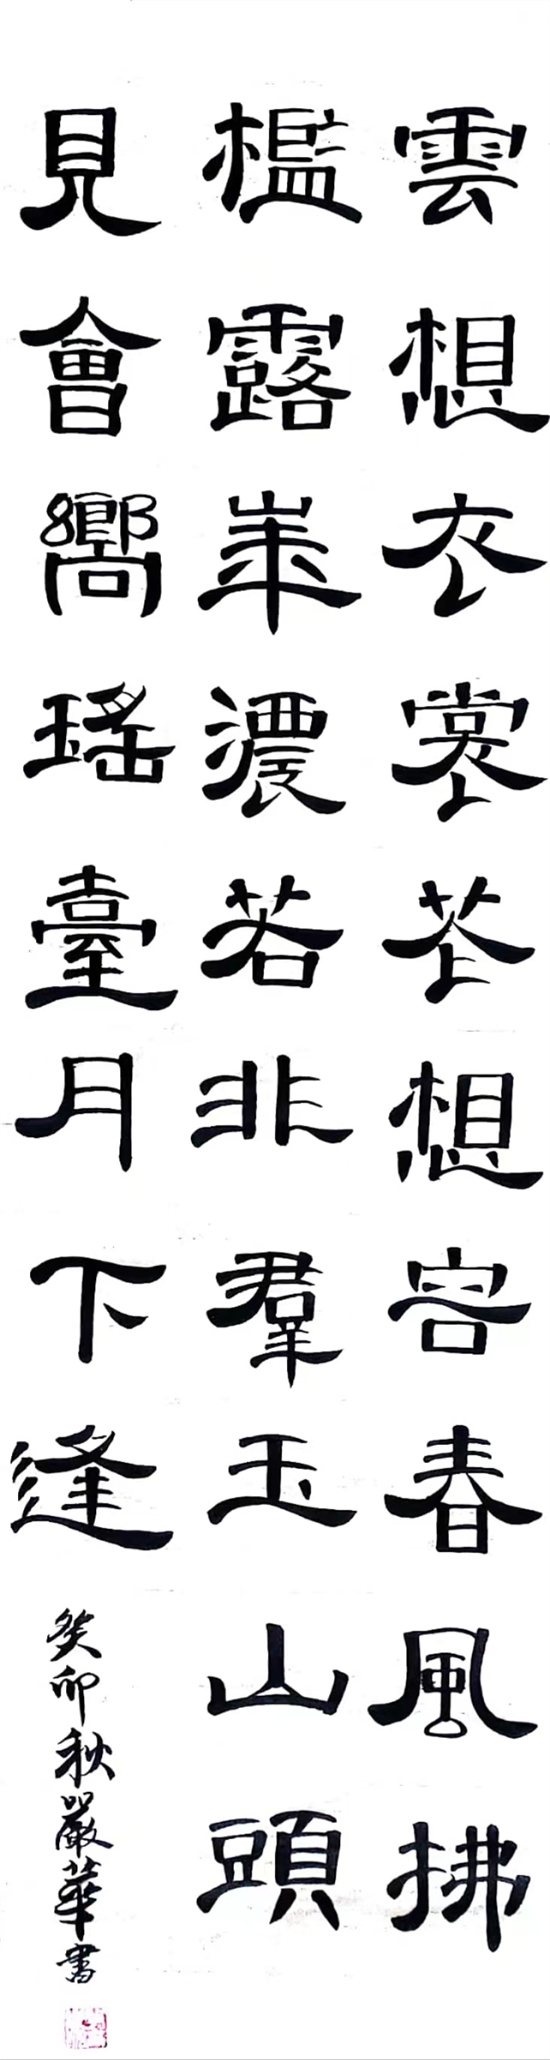 雲想衣裳花想容春風拂
檻露華濃若非羣玉山頭
見會嚮瑤臺月下逢
癸卯秋嚴華書